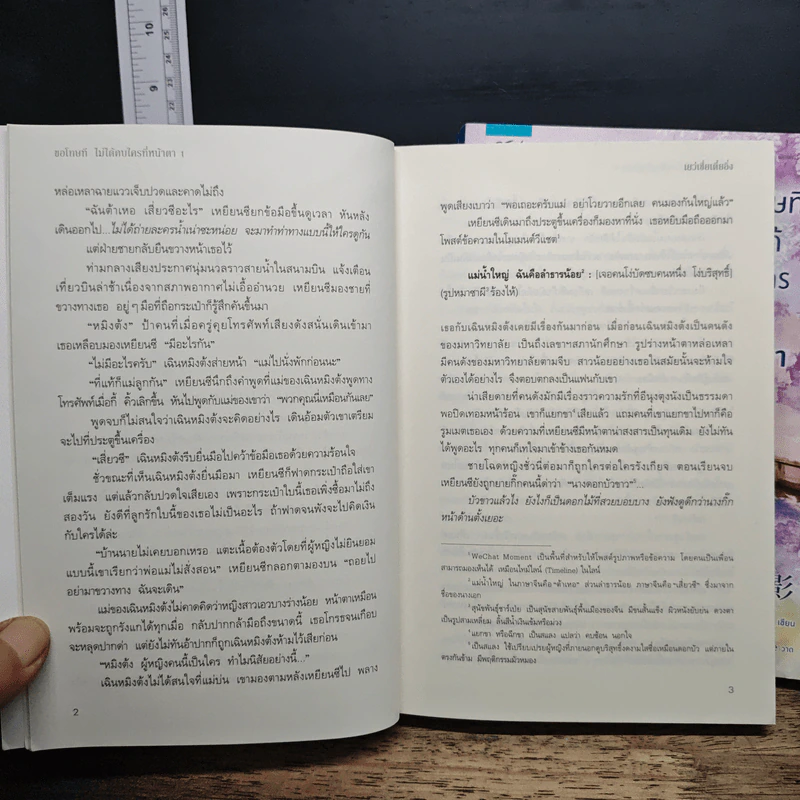 10
9
ขอโทษที ไม่ได้คบใครที่หน้าตา 1
หล่อเหลาฉายแววเจ็บปวดและคาดไม่ถึง
“ฉันต้าเหอ เสี่ยวซีอะไร” เหยียนซียกข้อมือขึ้นดูเวลา หันหลัง
เดินออกไป...ไม่ได้ถ่ายละครน้ำเน่าซะหน่อย จะมาทำท่าทางแบบนี้ให้ใครดูกัน
แต่ฝ่ายชายกลับยืนขวางหน้าเธอไว้
ท่ามกลางเสียงประกาศนุ่มนวลราวสายน้ำในสนามบิน แจ้งเตือน
เที่ยวบินล่าช้าเนื่องจากสภาพอากาศไม่เอื้ออำนวย เหยียนซีมองชายที่
ขวางทางเธอ อยู่ๆ มือที่ถือกระเป๋าก็รู้สึกคันขึ้นมา
“หมิงตั้ง” ป้าคนที่เมื่อครู่คุยโทรศัพท์เสียงดังสนั่นเดินเข้ามา
เธอเหลือบมองเหยียนซี “มีอะไรกัน”
“ไม่มีอะไรครับ” เฉินหมิงตั้งส่ายหน้า “แม่ไปนั่งพักก่อนนะ”
“ที่แท้ก็แม่ลูกกัน” เหยียนซีนึกถึงคำพูดที่แม่ของเฉินหมิงตั้งพูดทาง
โทรศัพท์เมื่อกี้ คิ้วเลิกขึ้น หันไปพูดกับแม่ของเขาว่า “พวกคุณนี่เหมือนกันเลย”
พูดจบก็ไม่สนใจว่าเฉินหมิงตั้งจะคิดอย่างไร เดินอ้อมตัวเขาเตรียม
จะไปที่ประตูขึ้นเครื่อง
“เสี่ยวซี” เฉินหมิงตั้งรีบยื่นมือไปคว้าข้อมือเธอด้วยความร้อนใจ
ชั่วขณะที่เห็นเฉินหมิงตั้งยื่นมือมา เหยียนซีก็ฟาดกระเป๋าถือใส่เขา
เต็มแรง แต่แล้วกลับปวดใจเสียเอง เพราะกระเป๋าใบนี้เธอเพิ่งซื้อมาไม่ถึง
สองวัน ยังดีที่ลูกรักใบนี้ของเธอไม่เป็นอะไร ถ้าฟาดจนพังจะไปคิดเงิน
กับใครได้ล่ะ
“บ้านนายไม่เคยบอกเหรอ แตะเนื้อต้องตัวโดยที่ผู้หญิงไม่ยินยอม
แบบนี้เขาเรียกว่าพ่อแม่ไม่สั่งสอน” เหยียนซีกลอกตามองบน “ถอยไป
อย่ามาขวางทาง ฉันจะเดิน”
แม่ของเฉินหมิงตั้งไม่คาดคิดว่าหญิงสาวเอวบางร่างน้อย หน้าตาเหมือน
พร้อมจะถูกรังแกได้ทุกเมื่อ กลับปากกล้ามือถึงขนาดนี้ เธอโกรธจนเกือบ
จะหลุดปากด่า แต่ยังไม่ทันอ้าปากก็ถูกเฉินหมิงตั้งห้ามไว้เสียก่อน
“หมิงตั้ง ผู้หญิงคนนี้เป็นใคร ทำไมนิสัยอย่างนี้...”
เฉินหมิงตั้งไม่ได้สนใจที่แม่บ่น เขามองตามหลังเหยียนซีไป พลาง
2
เยว่เซี่ยเตี๋ยอิ่ง
พูดเสียงเบาว่า “พอเถอะครับแม่ อย่าโวยวายอีกเลย คนมองกันใหญ่แล้ว”
เหยียนซีเดินมาถึงประตูขึ้นเครื่องก็มองหาที่นั่ง เธอหยิบมือถือออกมา
โพสต์ข้อความในโมเมนต์วีแชต¹
แม่น้ำใหญ่ ฉันคือลำธารน้อย² : [เจอคนโง่บัดซบคนหนึ่ง โง่บริสุทธิ์]
(รูปหมาชาผี³ร้องไห้)
เธอกับเฉินหมิงตั้งเคยมีเรื่องกันมาก่อน เมื่อก่อนเฉินหมิงตั้งเป็นคนดัง
ของมหาวิทยาลัย เป็นถึงเลขาฯสภานักศึกษา รูปร่างหน้าตาหล่อเหลา
มีคนดังของมหาวิทยาลัยตามจีบ สาวน้อยอย่างเธอในสมัยนั้นจะห้ามใจ
ตัวเองได้อย่างไร จึงตอบตกลงเป็นแฟนกับเขา
น่าเสียดายที่คนดังมักมีเรื่องราวความรักที่อีนุงตุงนังเป็นธรรมดา
พอปิดเทอมหน้าร้อน เขาก็แยกขา⁴เสียแล้ว แถมคนที่เขาแยกขาไปหาก็คือ
รูมเมตเธอเอง ด้วยความที่เหยียนซีมีหน้าตาน่าสงสารเป็นทุนเดิม ยังไม่ทัน
ได้พูดอะไร ทุกคนก็เทใจมาเข้าข้างเธอกันหมด
ชายโฉดหญิงชั่วนี่ต่อมาก็ถูกใครต่อใครรังเกียจ ตอนเรียนจบ
เหยียนซียังถูกยายกิ๊กคนนี้ด่าว่า “นางดอกบัวขาว⁵”...
บัวขาวแล้วไง ยังไงก็เป็นดอกไม้ที่สวยบอบบาง ยังฟังดูดีกว่านางกิ๊ก
หน้าด้านตั้งเยอะ
¹ WeChat Moment เป็นพื้นที่สำหรับให้โพสต์รูปภาพหรือข้อความ โดยคนที่เป็นเพื่อน
สามารถมองเห็นได้ เหมือนไทม์ไลน์ (Timeline) ในไลน์
² แม่น้ำใหญ่ ในภาษาจีนคือ “ต้าเหอ” ส่วนลำธารน้อย ภาษาจีนคือ “เสี่ยวซี” ซึ่งมาจาก
ชื่อของนางเอก
³ สุนัขพันธุ์ชาร์เป่ย เป็นสุนัขสายพันธุ์พื้นเมืองของจีน มีขนสั้นแข็ง ผิวหนังยับย่น ดวงตา
เป็นรูปสามเหลี่ยม ลิ้นสีน้ำเงินเข้มหรือม่วง
⁴ แยกขา หรือฉีกขา เป็นสแลง แปลว่า คบซ้อน นอกใจ
⁵ เป็นสแลง ใช้เปรียบเปรยผู้หญิงที่ภายนอกดูบริสุทธิ์งดงามใสซื่อเหมือนดอกบัว แต่ภายใน
ตรงกันข้าม มีพฤติกรรมมัวหมอง
3
影
เขียน